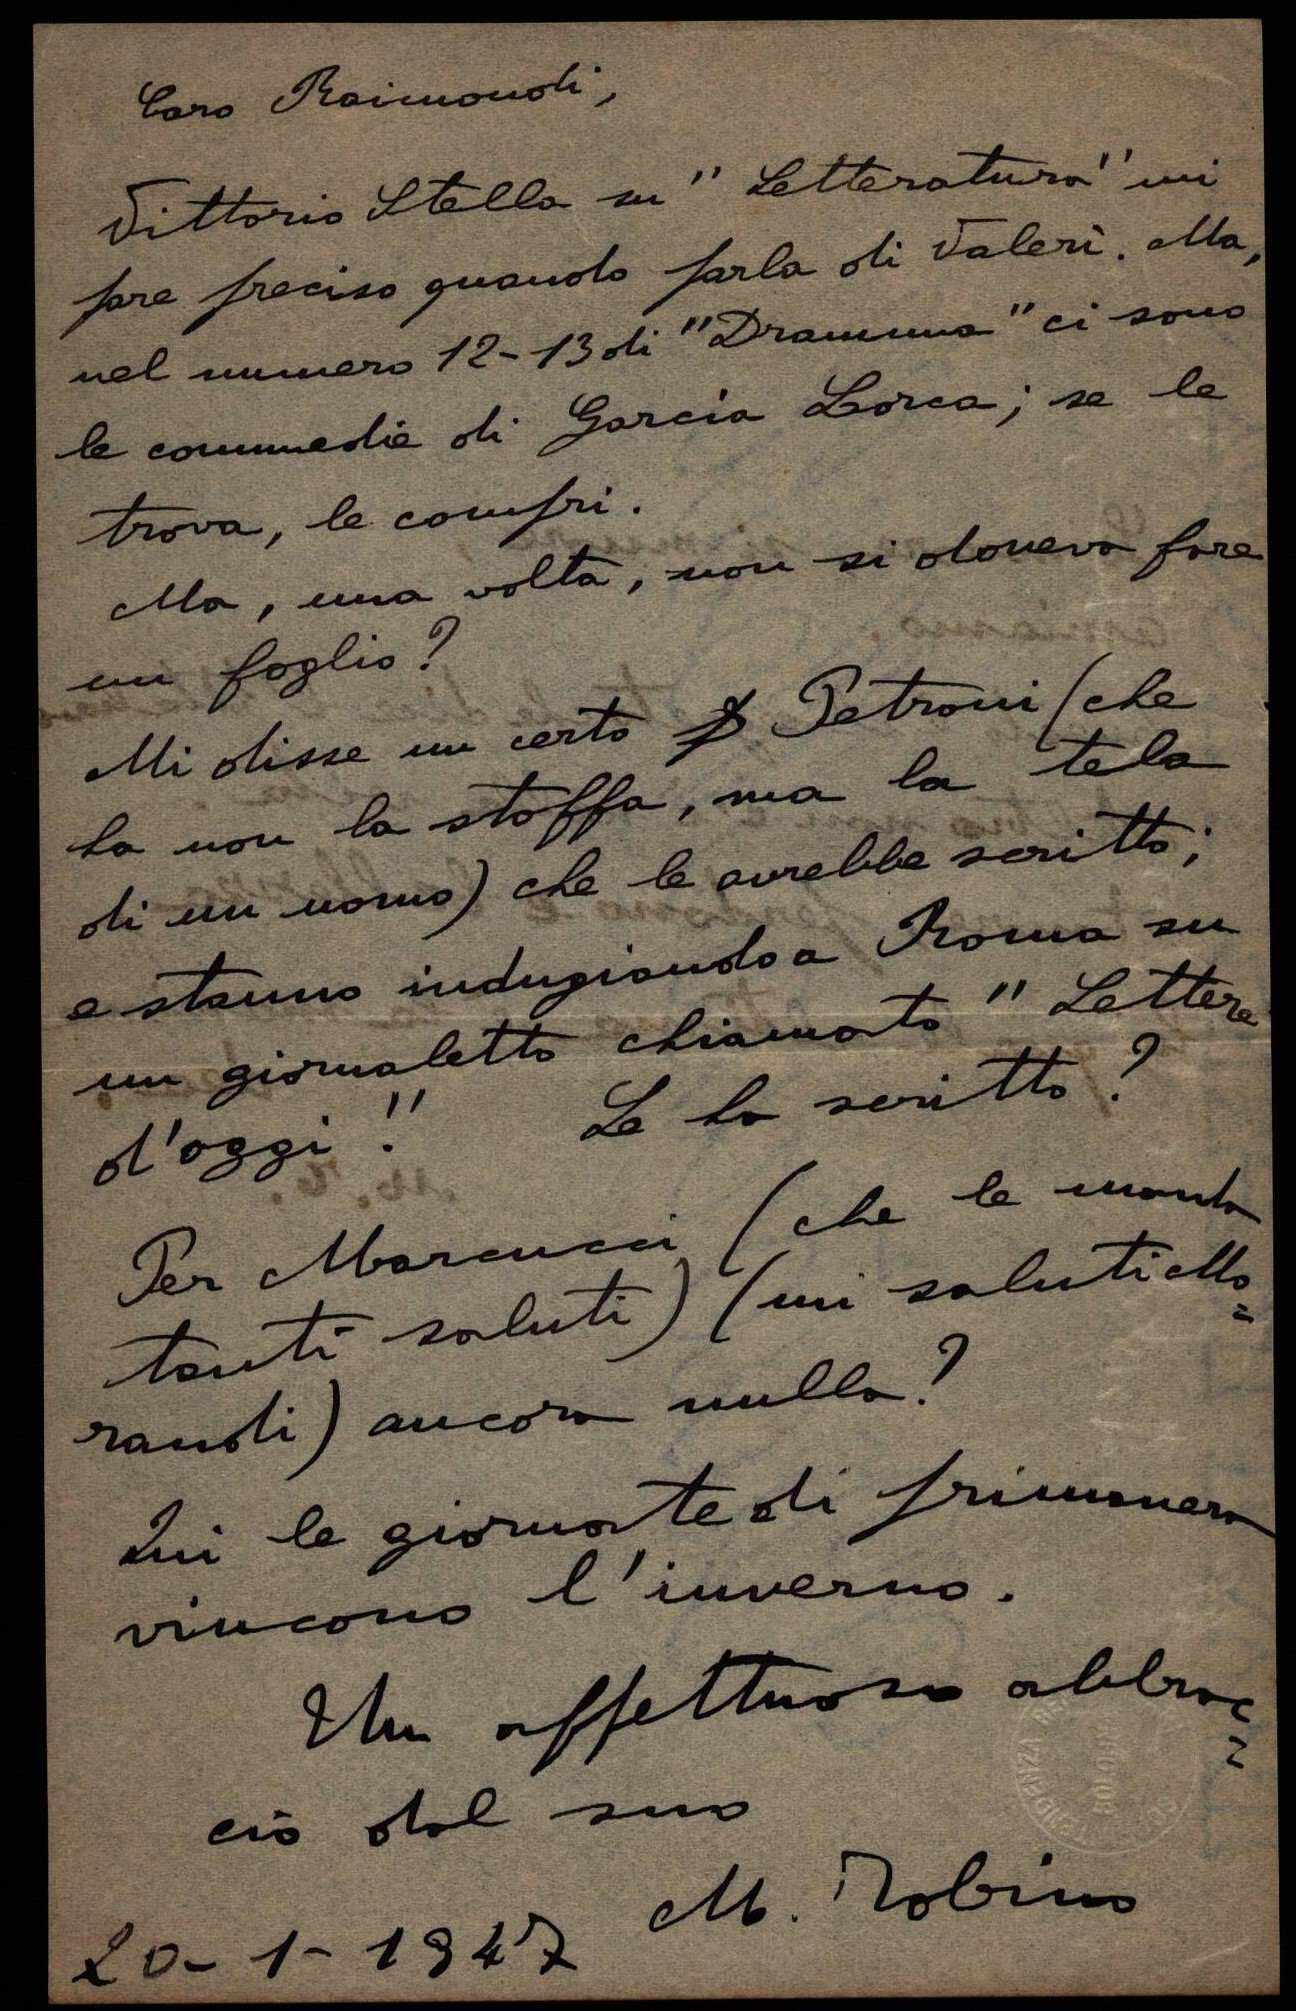 Caro Raimondi,
Vittorio Stella su "Letteratura" mi
pare preciso quando parla di Valeri. Ma,
nel numero 12-13 di "Dramma" ci sono
le commedie di García Lorca; se le
trova, le compri.
Ma, una volta, non si doveva fare
un foglio?
Mi disse un certo Petroni (che
ha non la stoffa, ma la tela
di un uomo) che le avrebbe scritto;
e stanno indugiando a Roma su
un giornaletto chiamato "Lettere
d'oggi". Le ha scritto?
Per Marcucci (che le manda
tanti saluti) (mi saluti Mo=
randi) ancora nulla?
Qui le giornate di primavera
vincono l'inverno.
Un affettuoso abbrac=
cio dal suo
M. Tobino
20-1-1947